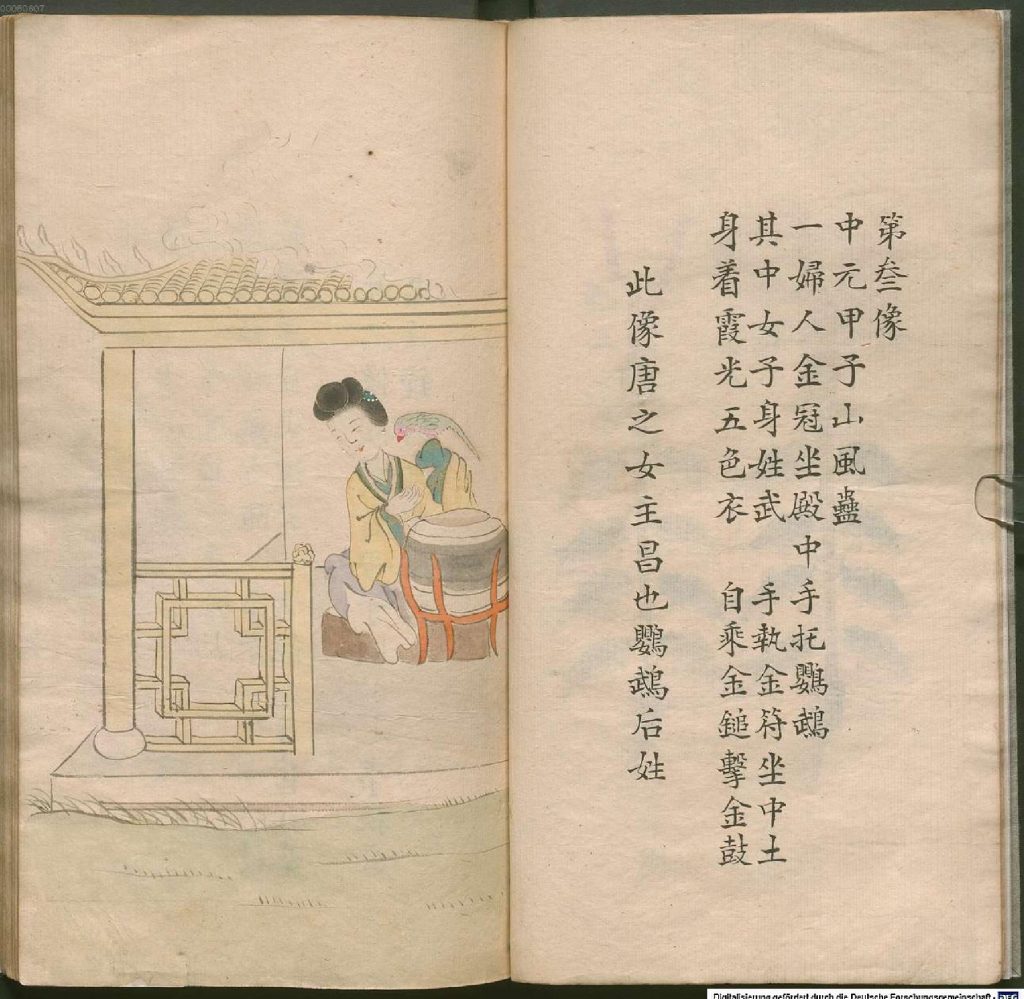 00060807
第叁像
中元甲子山風蠱
一婦人金冠坐殿中手托鸚鵡
其中女子身姓武 手執金符坐中土
身着霞光五色衣 自乘金鎚擊金鼓
此像唐之女主昌也鸚鵡后姓
Digitalisierung gefördert durch die Deutsche Forschungsgemeinschaft - DFG